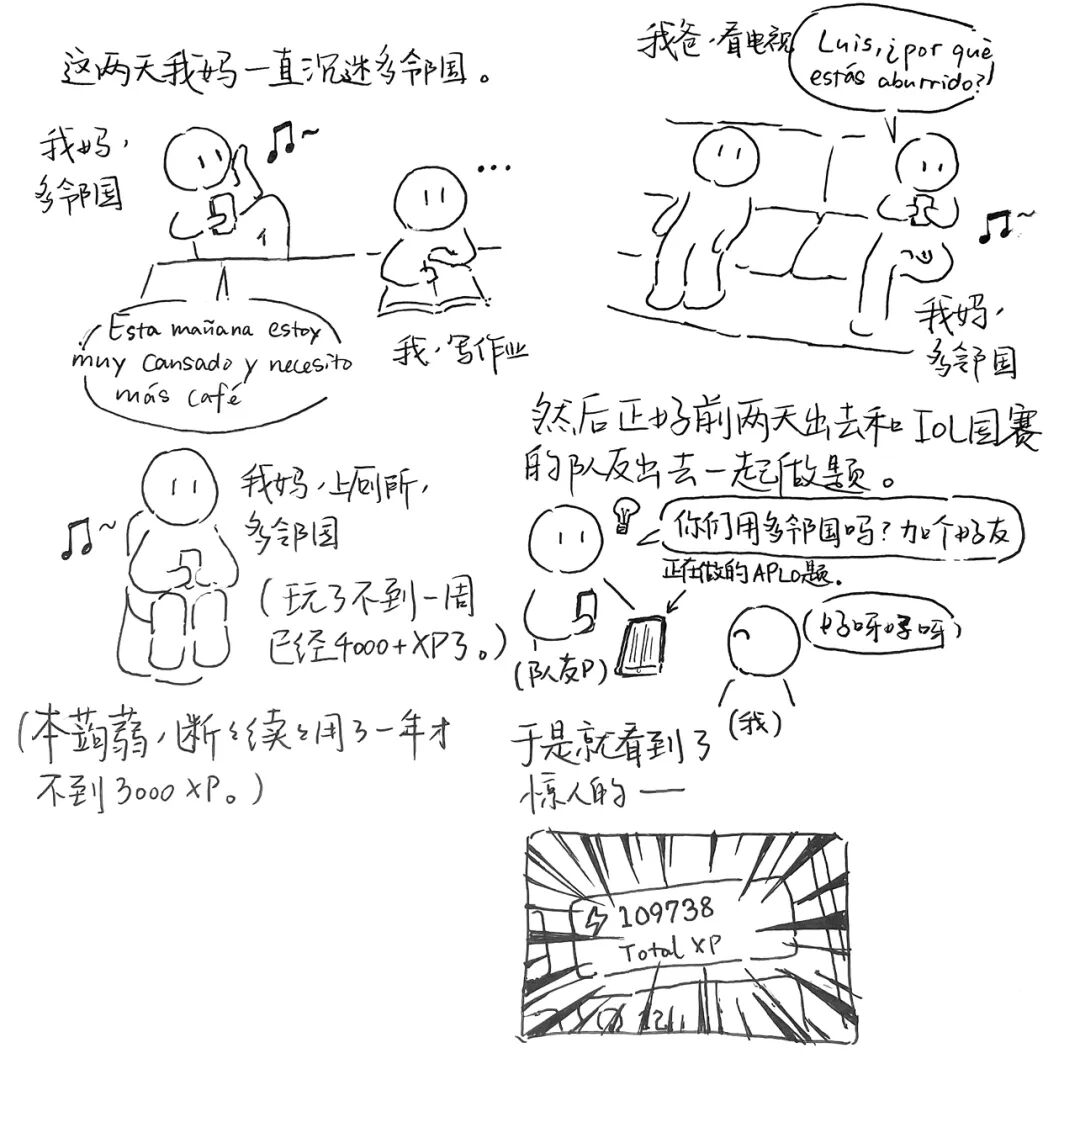 这两天我妈一直沉迷多邻国。
我妈，
多邻国
Esta mañana estoy
muy cansado y necesito
más café
我，写作业
我爸，看电视
Luis, ¿por què
estás aburrido?
我妈，
多邻国
我妈，上厕所，
多邻国
（玩了不到一周
已经4000+XP了。）
（本蒟蒻，断々续々用了一年才
不到3000XP。）
然后正好前两天出去和IOL国赛
的队友出去一起做题。
你们用多邻国吗？加个好友
正在做的APLO题.
（队友P）
好呀好呀
（我）
于是就看到了
惊人的——
109738
Total XP